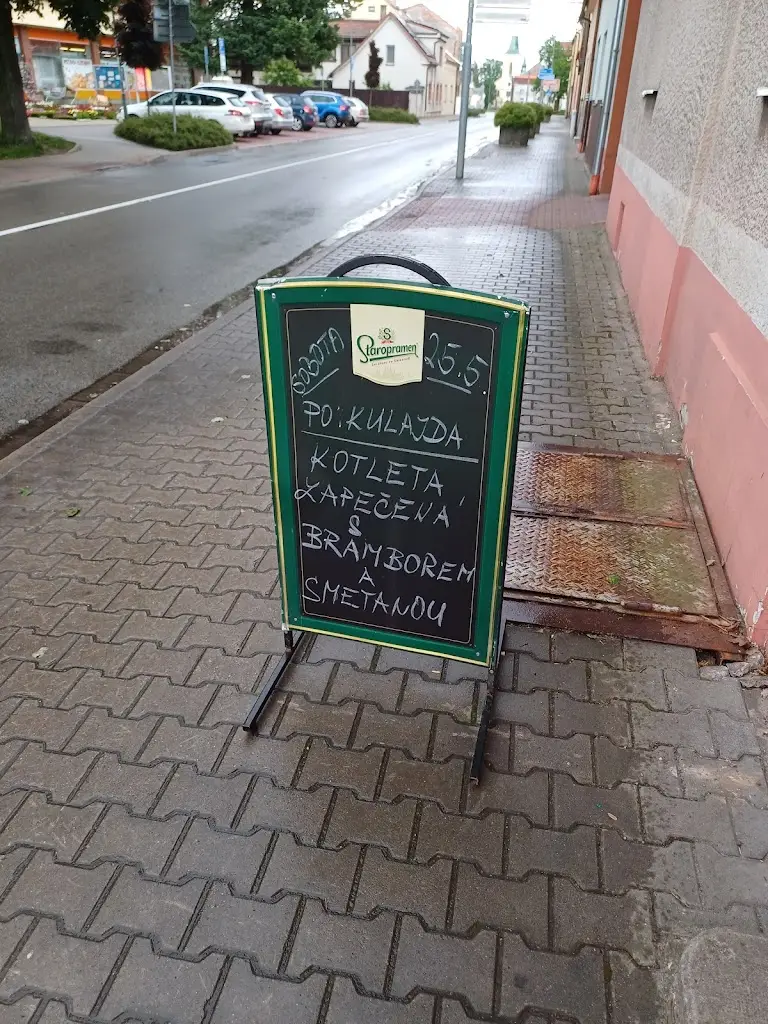 SOBOTA 25.5
Staropramen
PO: KULAJDA
KOTLETA
ZAPEČENÁ
S
BRAMBOREM
A
SMETANOU